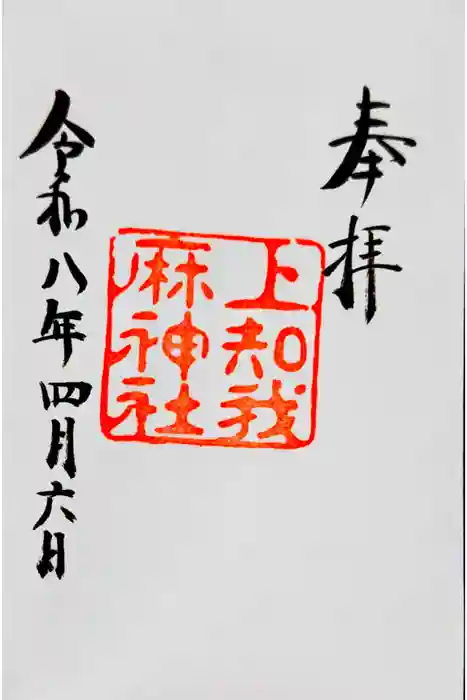 奉拝
上知我
麻神社
令和八年四月六日